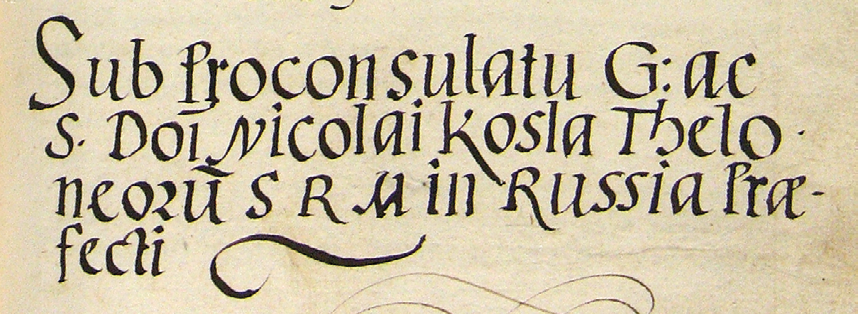 Sub Proconsulatu G: ac
S. Doī Nicolai Kosla Thelo-
neorū S R M in Russia Præ-
fecti